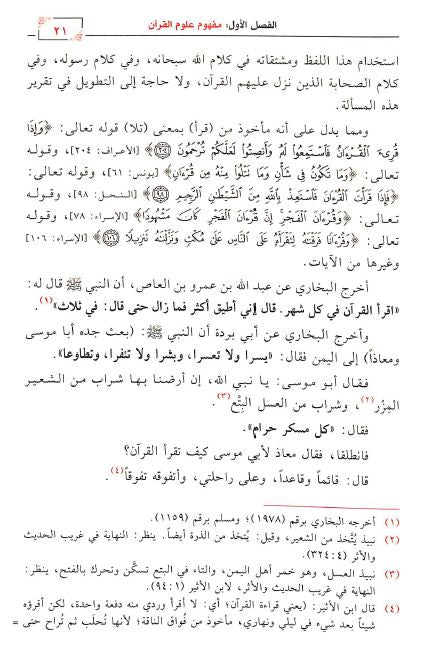 الفصل الأول: مفهوم علوم القرآن
٢١
استخدام هذا اللفظ ومشتقاته في كلام الله سبحانه، وفي كلام رسوله، وفي
كلام الصحابة الذين نزل عليهم القرآن، ولا حاجة إلى التطويل في تقرير
هذه المسألة.
ومما يدل على أنه مأخوذ من (قرأ) بمعنى (تلا) قوله تعالى: ﴿وَإِذَا
قُرِئَ ٱلْقُرْءَانُ فَٱسْتَمِعُوا۟ لَهُۥ وَأَنصِتُوا۟ لَعَلَّكُمْ تُرْحَمُونَ ﴿٢٠٤﴾﴾ [الأعراف: ٢٠٤]، وقوله
تعالى: ﴿وَمَا تَكُونُ فِى شَأْنٍ وَمَا تَتْلُوا۟ مِنْهُ مِن قُرْءَانٍ﴾ [يونس: ٦١]، وقوله تعالى:
﴿فَإِذَا قَرَأْتَ ٱلْقُرْءَانَ فَٱسْتَعِذْ بِٱللَّهِ مِنَ ٱلشَّيْطَٰنِ ٱلرَّجِيمِ ﴿٩٨﴾﴾ [النحل: ٩٨]، وقوله
تعالى: ﴿وَقُرْءَانَ ٱلْفَجْرِ إِنَّ قُرْءَانَ ٱلْفَجْرِ كَانَ مَشْهُودًا﴾ [الإسراء: ٧٨]، وقوله
تعالى: ﴿وَقُرْءَانًا فَرَقْنَٰهُ لِتَقْرَأَهُۥ عَلَى ٱلنَّاسِ عَلَىٰ مُكْثٍ وَنَزَّلْنَٰهُ تَنزِيلًا ﴿١٠٦﴾﴾ [الإسراء: ١٠٦]
وغيرها من الآيات.
أخرج البخاري عن عبد الله بن عمرو بن العاص، أن النبي ﷺ قال له:
«اقرأ القرآن في كل شهر. قال إني أطيق أكثر فما زال حتى قال: في ثلاث»(١).
وأخرج البخاري عن أبي بردة أن النبي ﷺ: (بعث جده أبا موسى
ومعاذاً) إلى اليمن فقال: «يسرا ولا تعسرا، وبشرا ولا تنفرا، وتطاوعا».
فقال أبو موسى: يا نبي الله، إن أرضنا بها شراب من الشعير
المِزْر(٢)، وشراب من العسل البِتْع(٣).
فقال: «كل مسكر حرام».
فانطلقا، فقال معاذ لأبي موسى كيف تقرأ القرآن؟
قال: قائماً وقاعداً، وعلى راحلتي، وأتفوقه تفوقاً(٤).
(١) أخرجه البخاري برقم (١٩٧٨)؛ ومسلم برقم (١١٥٩).
(٢) نبيذ يُتَّخذ من الشعير، وقيل: يُتخذ من الذرة أيضاً. ينظر: النهاية في غريب الحديث
والأثر (٤: ٣٢٤).
(٣) نبيذ العسل، وهو خمر أهل اليمن، والتاء في البتع تسكَّن وتحرك بالفتح، ينظر:
النهاية في غريب الحديث والأثر، لابن الأثير (١: ٩٤).
(٤) قال ابن الأثير: (يعني قراءة القرآن؛ أي: لا أقرأ وردي منه دفعة واحدة، لكن أقرؤه
شيئاً بعد شيء في ليلي ونهاري، مأخوذ من فُواق الناقة؛ لأنها تُحلَب ثم تُراح حتى =